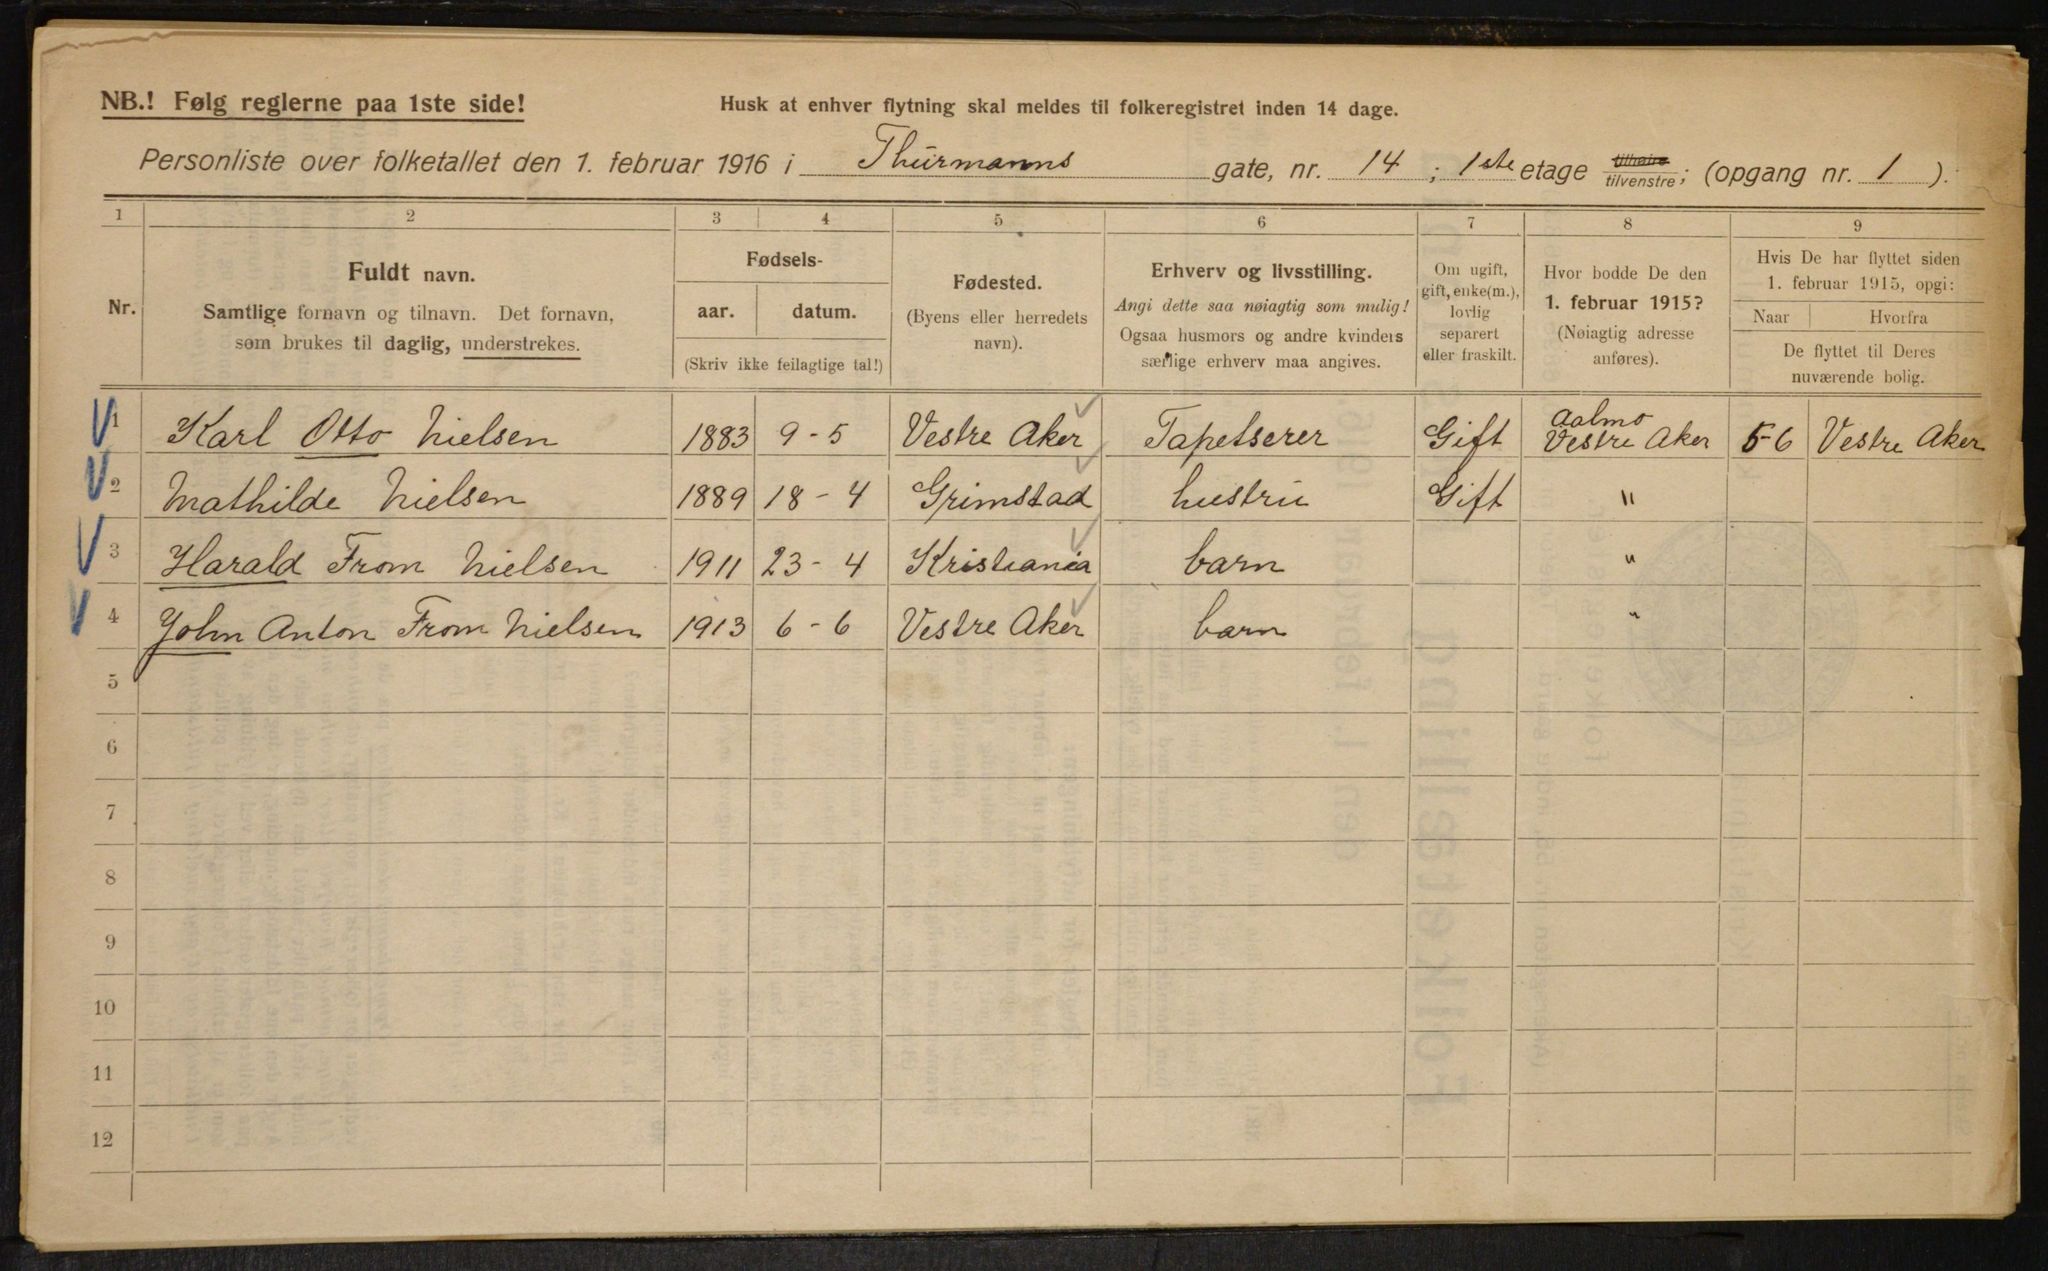 NB.! Følg reglerne paa 1ste side!
Husk at enhver flytning skal meldes til folkeregistret inden 14 dage.
Personliste over folketallet den 1. februar 1916 i Thurmanns gate, nr. 14 ; 1ste etage tilhøire tilvenstre; (opgang nr. 1 ).
1 2 3 4 5 6 7 8 9
Nr.
Fuldt navn.
Samtlige fornavn og tilnavn. Det fornavn,
som brukes til daglig, understrekes.
Fødsels-
aar. datum.
(Skriv ikke feilagtige tal!)
Fødested.
(Byens eller herredets
navn).
Erhverv og livsstilling.
Angi dette saa nøiagtig som mulig!
Ogsaa husmors og andre kvinders
særlige erhverv maa angives.
Om ugift,
gift, enke(m.),
lovlig
separert
eller fraskilt.
Hvor bodde De den
1. februar 1915?
(Nøiagtig adresse
anføres).
Hvis De har flyttet siden
1. februar 1915, opgi:
Naar Hvorfra
De flyttet til Deres
nuværende bolig.
Aalmo
1 Karl Otto Nielsen 1883 9-5 Vestre Aker Tapetserer Gift Vestre Aker 5-6 Vestre Aker
2 Mathilde Nielsen 1889 18-4 Grimstad hustru Gift "
3 Harald From Nielsen 1911 23-4 Kristiania barn "
4 John Anton From Nielsen 1913 6-6 Vestre Aker barn "
5
6
7
8
9
10
11
12